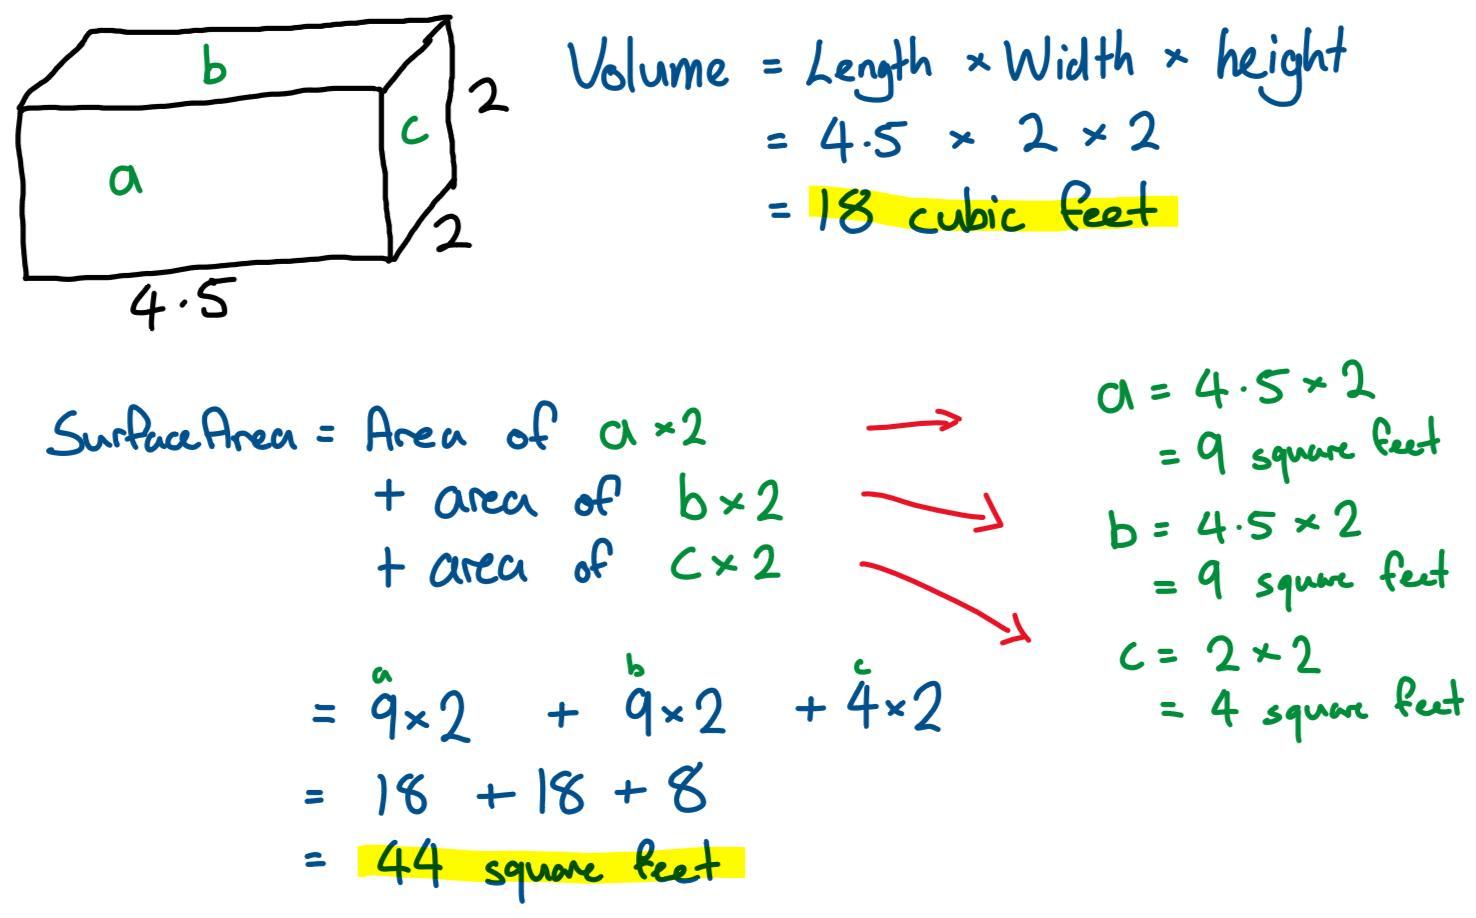 b
c
a
2
2
4.5
Volume = Length × Width × height
= 4.5 × 2 × 2
= 18 cubic feet
Surface Area = Area of a × 2
+ area of b × 2
+ area of c × 2
a = 4.5 × 2
= 9 square feet
b = 4.5 × 2
= 9 square feet
c = 2 × 2
= 4 square feet
a b c
= 9 × 2 + 9 × 2 + 4 × 2
= 18 + 18 + 8
= 44 square feet